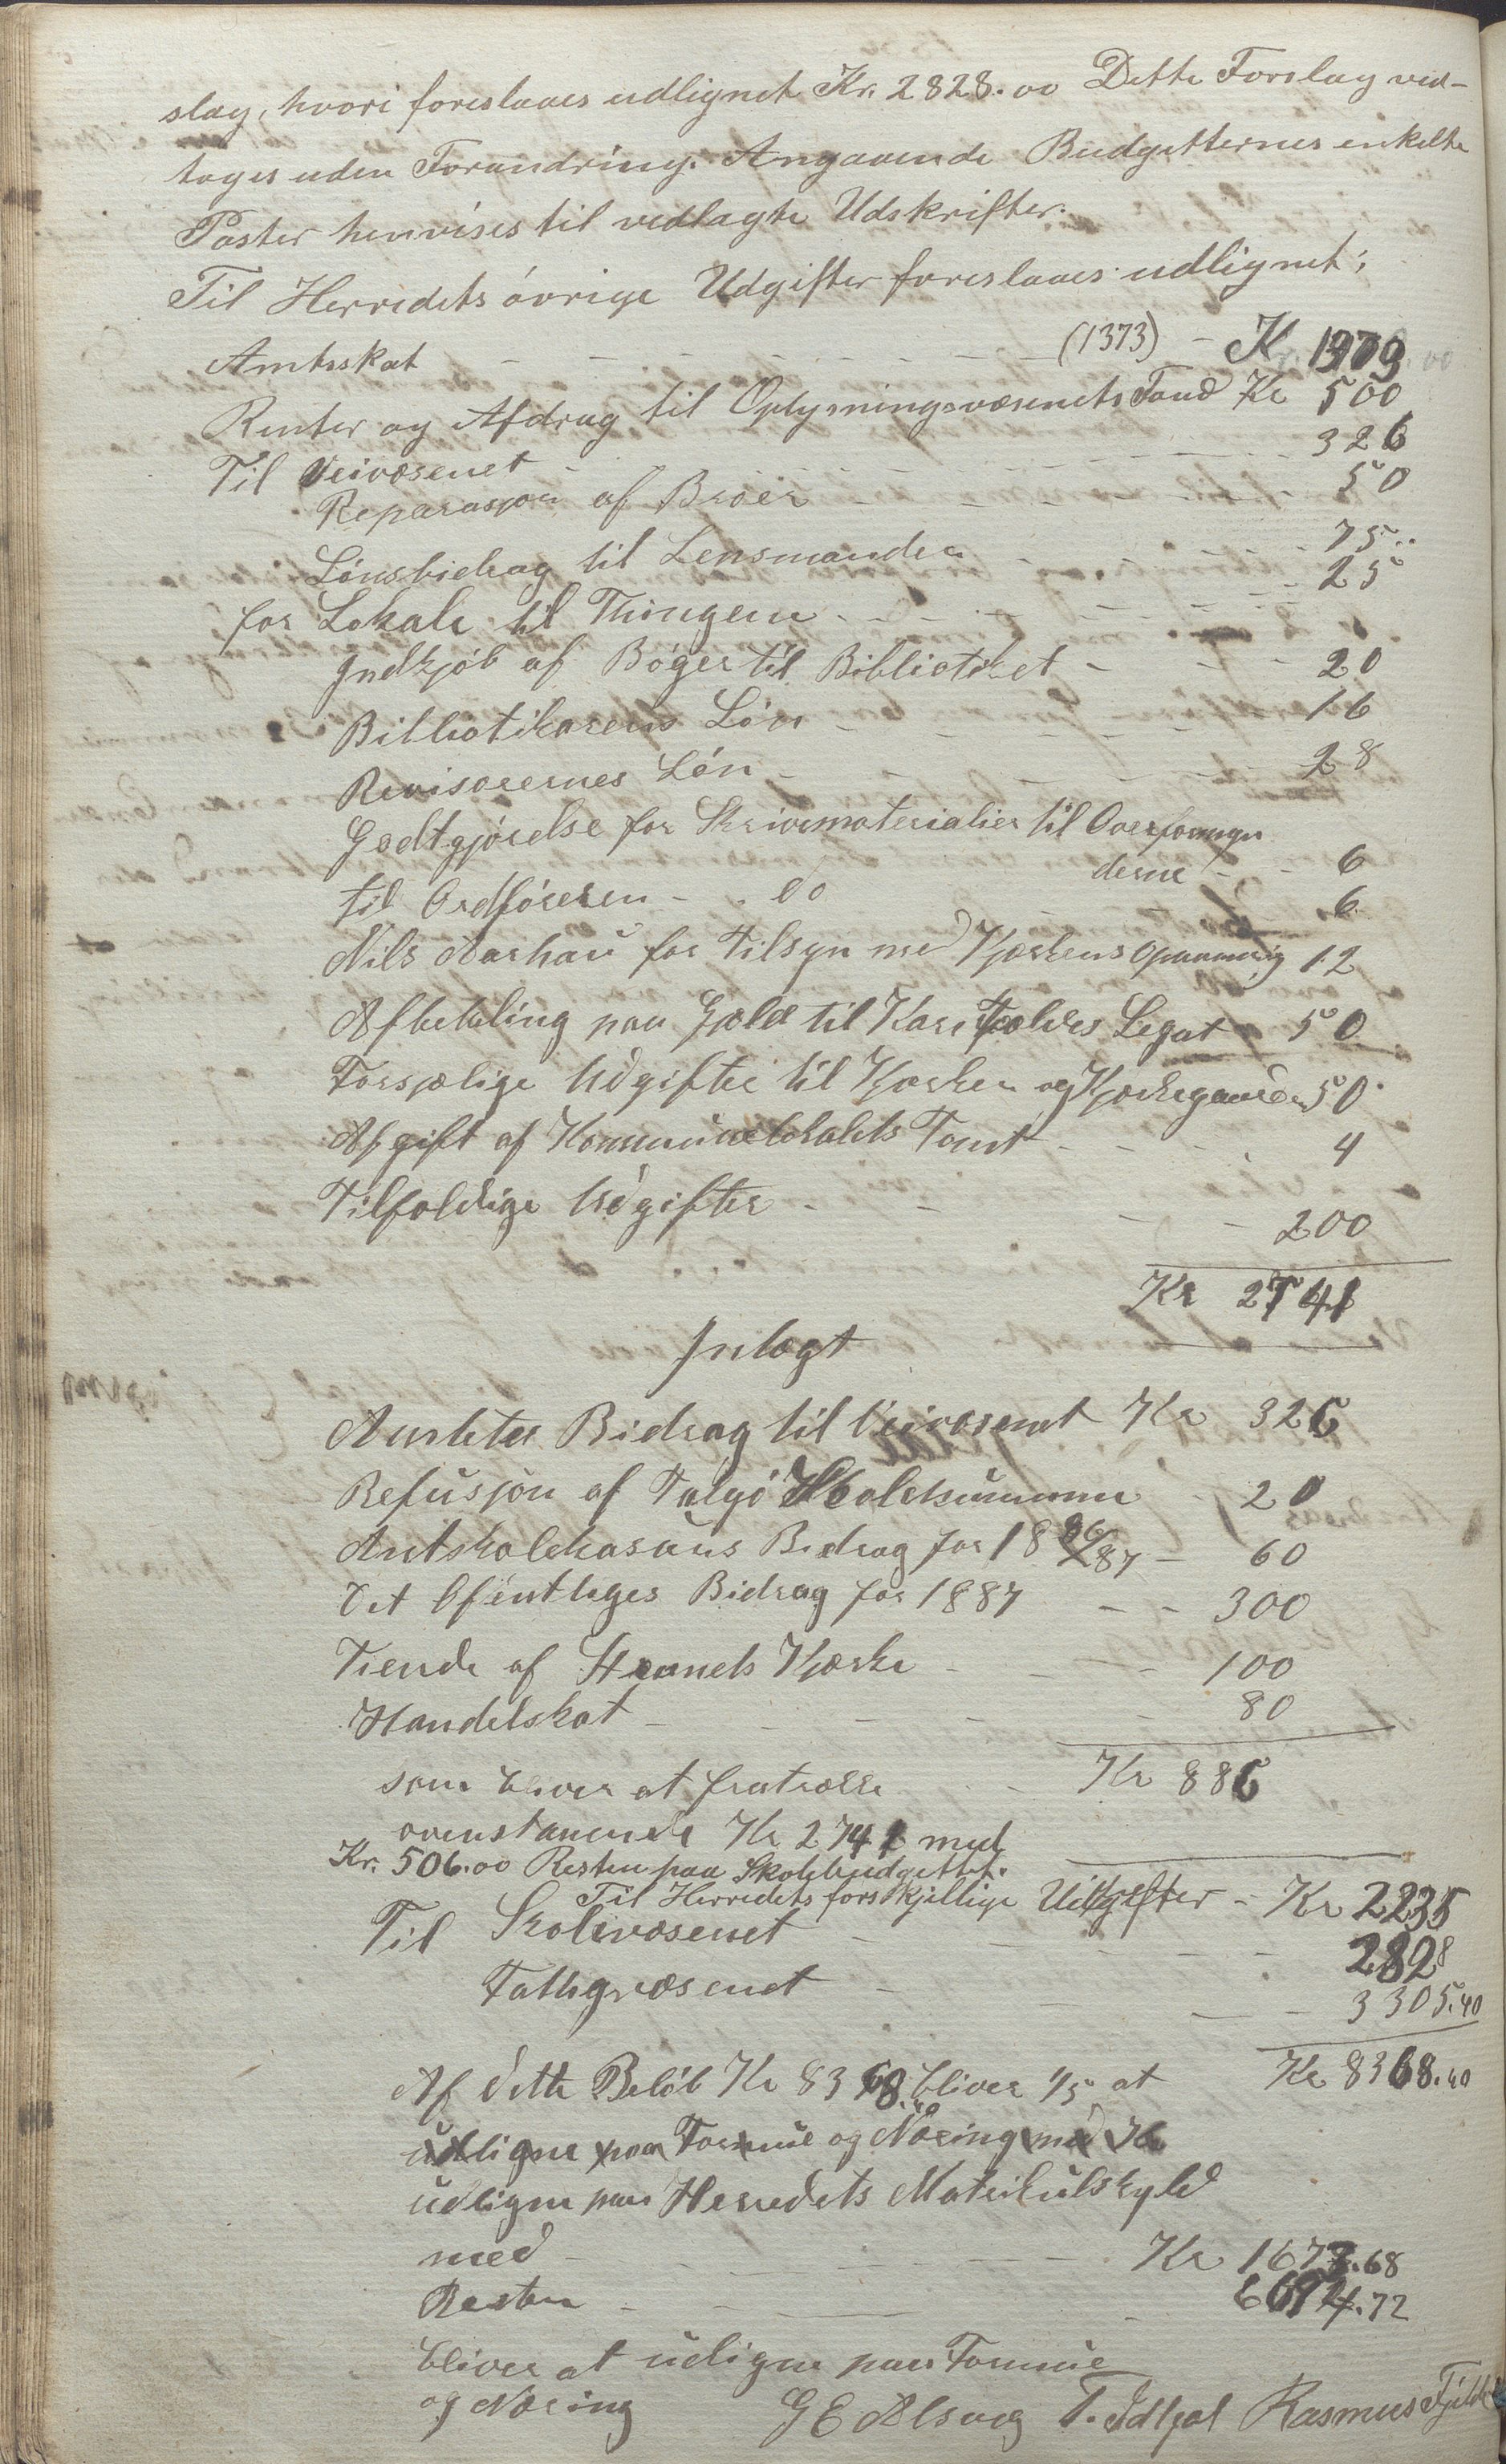 slag, hvori foreslaaes udlignet Kr. 2828.00 Dette Forslag ved-
toges uden Forandring. Angaaende Budgetternes enkelte
Poster henvises til vedlagte Udskrifter.
Til Herredets øvrige Udgifter foreslaaes udlignet:
Amtsskat - - - - (1373) - K 1373
Renter og Afdrag til Oplysningsvæsenets Fond Kr 500
Til Veivæsenet - - - 326
Reparasjon af Broer - - - 50
Lønsbidrag til Lensmanden - - - 75..
for Lokale til Thingene - - - 25
Indkjøb af Bøger til Bibliotheket - - - 20
Bibliotikarens Løn - - - 16
Revisorernes Løn - - - 28
Godtgjørelse for Skrivematerialier til Overformyn
derne - - 6
til Ordføreren - . do - - 6
Nils Aarhau for Tilsyn med Kjærkens Opvarmnig 12
Afbetaling paa Gjæld til Kari Legat - 50
Forsjælige Udgifter til Kjærken og Kjærkegaarden 50
Afgift af Kommunelokalets Tomt - - - 4
Tilfældige Udgifter - - - 200
Kr 2741
Intægt
Amtets Bidrag til Veivæsenet Kr 326
Refusjon af Talgø Skolekummune - 20
Amtskolekasens Bidrag for 1886/87 - 60
Det Ofentliges Bidrag for 1887 - - 300
Tiende af Strands Kjærke - - - 100
Handelskat - - - 80
som bliver at fratrække - Kr 886
ovenstaaende Kr 2741 med
Kr. 506.00 Resten paa Skolebudgettet.
Til Herredets forskjellige Udgifter - Kr 2235
Til Skolevæsenet - - - 2828
Fattigvæsenet - - - 3305.40
Kr 8368.40
Af dette Beløb Kr 8368.40 bliver 1/5 at
udligne paa Formue og Næring med Kr
udligne paa Herredets Matrikulskyld
med - - - Kr 1673.68
Resten - - - 6694.72
bliver at udligne paa Formue
og Næring G E Alsvag T. Idsøl Rasmus